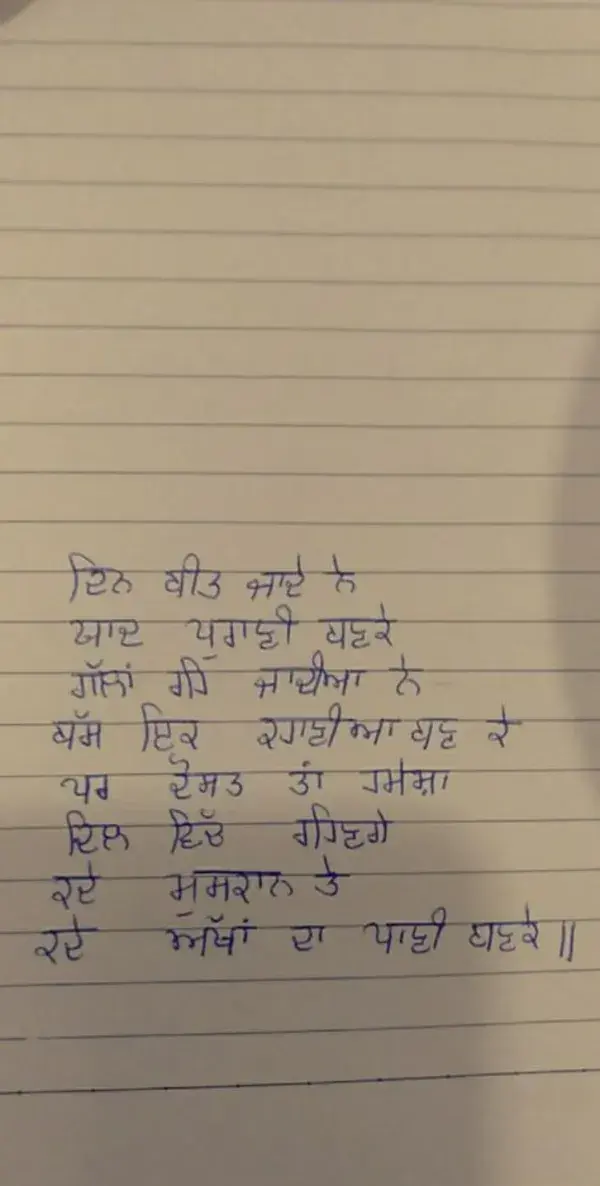 ਦਿਨ ਬੀਤ ਜਾਦੇ ਨੇ
ਯਾਦ ਪੁਰਾਣੀ ਬਣਕੇ
ਗੱਲਾਂ ਰਹਿ ਜਾਦੀਆ ਨੇ
ਬੱਸ ਇਕ ਕਹਾਣੀਆ ਬਣ ਕੇ
ਪਰ ਦੋਸਤ ਤਾਂ ਹਮੇਸ਼ਾ
ਦਿਲ ਵਿੱਚ ਰਹਿਣਗੇ
ਕਦੇ ਮੁਸਕਾਨ ਤੇ
ਕਦੇ ਅੱਖਾਂ ਦਾ ਪਾਣੀ ਬਣਕੇ ||